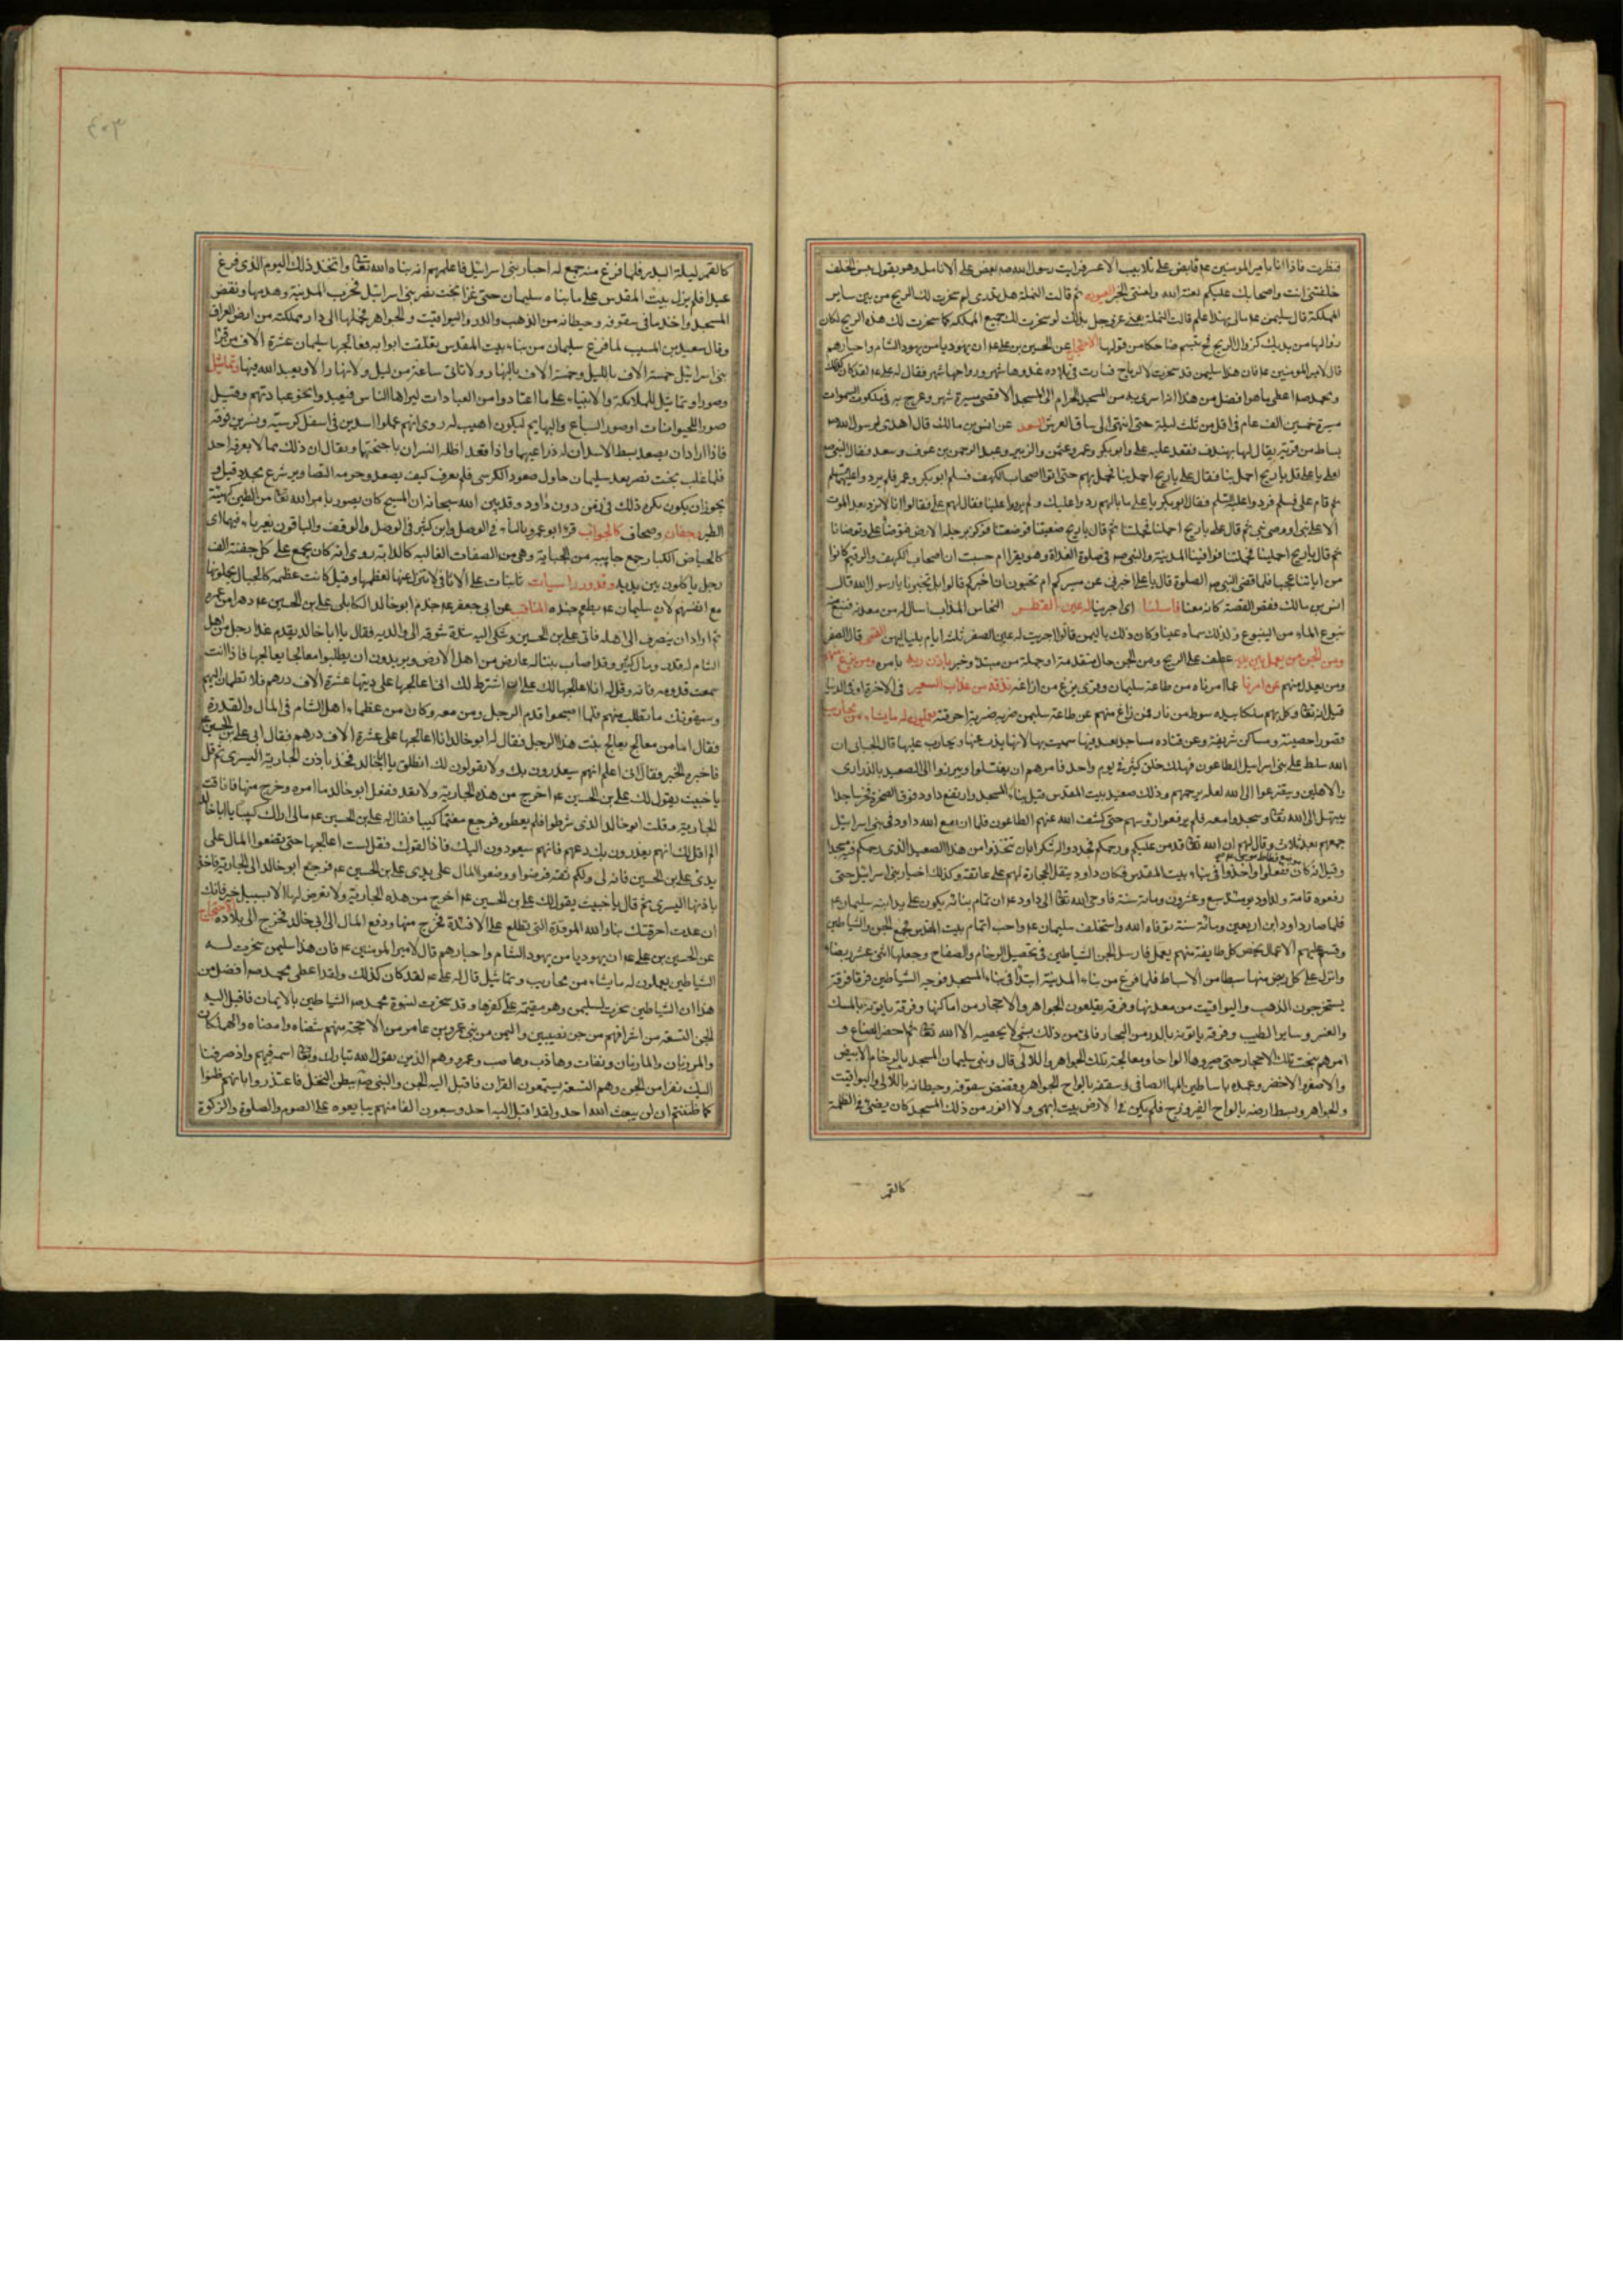 فنظرت فاذا انا بامير المومنين عم قابض على تلابيب الاعسر فرايت رسول الله صم يعض على الانامل وهو يقول بئس الخلف
خلفتنى انت واصحابك عليكم لعنة الله ولعنتى الخبر العيون ثم قالت النملة هل تدرى لم سخرت لك الريح من بين ساير
المملكة قال سليمن عم مالى بهذا علم قالت النملة يعنى عز وجل بذلك لو سخرت لك جميع المملكه كما سخرت لك هذه الريح لكان
زوالها من يدك كزوال الريح فح تبسم ضاحكا من قولها الاحتجاج عن الحسين بن على عم ان يهوديا من يهود الشام واحبارهم
قال لامير المومنين عم فان هذا سليمن قد سخرت له الرياح فسارت فى بلاده غدوها شهر ورواحها شهر فقال له على عم لقد كان كذلك
ومحمد صم اعطى ما هو افضل من هذا انه اسرى به من المسجد الحرام الى المسجد الاقصى مسيرة شهر وعرج به فى ملكوت السموات
مسيرة خمسين الف عام فى اقل من ثلث ليلة حتى انتهى الى ساق العرش السعد عن انس بن مالك قال اهدى لرسول الله صم
بساط من قرية يقال لها بهندف فقعد عليه على وابو بكر وعمر وعثمن والزبير وعبد الرحمن بن عوف وسعد فقال النبى صم
لعلى يا على قل يا ريح احملينا فقال على يا ريح احملينا فحملتهم حتى اتوا اصحاب الكهف فسلم ابو بكر وعمر فلم يردوا عليهم السلم
ثم قام على فسلم فردوا عليه السلم فقال ابو بكر يا على ما بالهم ردوا عليك ولم يردوا علينا فقال لهم على فقالوا انا لا نرد بعد الموت
الا على نبى او وصى نبى ثم قال على يا ريح احملينا فحملتنا ثم قال يا ريح ضعينا فوضعتنا فوكز برجله الارض فتوضا على وتوضانا
ثم قال يا ريح احملينا فحملتنا فوافينا المدينة والنبى صم فى صلوة الغداة وهو يقرا ام حسبت ان اصحاب الكهف والرقيم كانوا
من اياتنا عجبا فلما قضى النبى صم الصلوة قال يا على اخبرنى عن مسيركم ام تحبون ان اخبركم قالوا بل تخبرنا يا رسول الله قال
انس بن مالك فقص القصة كانه معنا واسلنا اى اجرينا له عين القطر النحاس المذاب اسال له من معدنه فنبع منه
نبوع الماء من الينبوع ولذلك سماه عينا وكان ذلك باليمن قالوا اجريت له عين الصفر ثلثة ايام بلياليهن القمى قال الصفر
ومن الجن من يعمل بين يديه عطف على الريح ومن الجن حال متقدمة او جملة من مبتدا وخبر باذن ربه بامره ومن يزغ منهم
ومن يعدل منهم عن امرنا عما امرناه من طاعة سليمان وقرى يزغ من ازاغه نذقه من عذاب السعير فى الاخرة او فى الدنيا
قيل انه تعا وكل بهم ملكا بيده سوط من نار فمن زاغ منهم عن طاعة سليمن ضربه ضربة احرقته يعملون له ما يشاء من محاريب
وقصور حصينة ومساكن شريفة وعن قتاده مساجد يعبد فيها سميت بها لانها يذب عنها ويحارب عليها قال الجبائى ان
الله سلط على بنى اسرائيل الطاعون فهلك خلق كثير فى يوم واحد فامرهم ان يغتسلوا ويبرزوا الى الصعيد بالذرارى
والاهلين ويتضرعوا الى الله لعله يرحمهم وذلك صعيد بيت المقدس قبل بناء المسجد وارتفع داود فوق الصخرة فخر ساجدا
يبتهل الى الله تعا وسجدوا معه فلم يرفعوا رؤسهم حتى كشف الله عنهم الطاعون فلما ان شفع الله داود فى بنى اسرائيل
جمعهم بعد ثلاث وقال لهم ان الله تعا قد من عليكم ورحمكم فجددوا له شكرا بان تتخذوا من هذا الصعيد الذى رحمكم فيه مسجدا
ففعلوا واخذوا فى بناء بيت المقدس فكان داود ينقل الحجارة لهم على عاتقه وكذلك اخيار بنى اسرائيل حتى
رفعوه قامة ولداود يومئذ سبع وعشرون ومائة سنة فاوحى الله تعا الى داود عم ان تمام بنائه يكون على يد ابنه سليمان عم
فلما صار داود ابن اربعين ومائة سنة توفاه الله واستخلف سليمان عم واحب اتمام بيت المقدس فجمع الجن والشياطين
وقسم عليهم الاعمال يخص كل طايفة منهم بعمل فارسل الجن الشياطين فى تحصيل الرخام والصفاح وجعلها اثنى عشر ربضا
وانزل على كل ربض منها سبطا من الاسباط فلما فرغ من بناء المدينة ابتدا فى بناء المسجد فوجه الشياطين فرقا فرقة
يستخرجون الذهب واليواقيت من معدنها وفرقة يقلعون الجواهر والاحجار من اماكنها وفرقة ياتونه بالمسك
والعنبر وساير الطيب وفرقة ياتونه بالدر من البحار فاتى من ذلك بشى لا يحصيه الا الله تعا ثم احضر الصناع و
امرهم بنحت تلك الاحجار حتى صيروها الواحا ومعالجة تلك الجواهر واللالى قال وبنى سليمان المسجد بالرخام الابيض
والاصفر والاخضر وعمده باساطين المها الصافى وسقفه بالواح الجواهر وفضض سقوفه وحيطانه باللالى واليواقيت
والجواهر وبسط ارضه بالواح الفيروزج فلم يكن فى الارض بيت ابهى ولا انور من ذلك المسجد كان يضئ فى الظلمة
كالقمر
كالقمر ليلة البدر فلما فرغ منه جمع له احبار بنى اسرائيل فاعلمهم انه بناه لله تعا واتخذ ذلك اليوم الذى فرغ
عيدا فلم يزل بيت المقدس على ما بناه سليمان حتى غزا بخت نصر بنى اسرائيل فخرب المدينة وهدمها ونقض
المسجد واخذ ما فى سقوفه وحيطانه من الذهب والدر واليواقيت والجواهر فحملها الى دار مملكته من ارض العراق
وقال سعيد بن المسيب لما فرغ سليمان من بناء بيت المقدس تغلقت ابوابه فعالجها سليمان عشرة الاف من قراء
بنى اسرائيل خمسة الاف بالليل وخمسة الاف بالنهار ولا تاتى ساعة من ليل ولا نهار الا ويعبد الله فيها وتماثيل
وصورا وتماثيل للملائكة والانبياء على ما اعتادوا من العبادات ليراها الناس فيعبدوا نحو عبادتهم وقيل
صور الحيوانات او صور السباع والبهايم ليكون اهيب له روى انهم عملوا اسدين فى اسفل كرسيه ونسرين فوقه
فاذا اراد ان يصعد بسط الاسدان له ذراعيهما واذا قعد اظله النسران باجنحتهما ويقال ان ذلك مما لا يعرفه احد
فلما غلب بخت نصر بعد سليمان حاول صعود الكرسى فلم يعرف كيف يصعد وحرمة التصاوير شرع مجدد قيل و
يجوز ان يكون يكره ذلك فى زمن دون داود وقد بين الله سبحانه ان المسيح كان يصور بامر الله تعا من الطين كهيئة
الطير وجفان وصحاف كالجواب قرء ابو عمرو بالياء فى الوصل وابن كثير فى الوصل والوقف والباقون بغير ياء فيهما اى
كالحياض الكبار جمع جابية من الجباية وهى من الصفات الغالبه كالدابه روى انه كان يجمع على كل جفنة الف
رجل ياكلون بين يديه وقدور راسيات ثابتات على الاثافى لا تنزل عنها لعظمها وقيل كانت عظيمه كالجبال يحملونها
مع انفسهم لان سليمان عم يطعم جنده المناقب عن ابى جعفر عم خدم ابو خالد الكابلى على بن الحسين عم دهرا من عمره
ثم اراد ان ينصرف الى اهله فاتى على بن الحسين وشكى اليه شدة شوقه الى والديه فقال يا ابا خالد يقدم غدا رجل من اهل
الشام له قدر ومال كثير وقد اصاب بنتا له عارض من اهل الارض ويريدون ان يطلبوا معالجا يعالجها فاذا انت
سمعت قدومه فاته وقل له انا اعالجها لك على ان اشترط لك انى اعالجها على ديتها عشرة الاف درهم فلا تطمئن اليهم
وسيعطونك ما تطلب منهم فلما اصبحوا قدم الرجل ومن معه وكان من عظماء اهل الشام فى المال والمقدرة
فقال اما من معالج يعالج بنت هذا الرجل فقال له ابو خالد انا اعالجها على عشرة الاف درهم فقال ابى على بن الحسين عم
فاخبره الخبر فقال انى اعلم انهم سيغدرون بك ولا يفون لك انطلق يا ابا خالد فخذ باذن الجارية اليسرى ثم قل
يا خبيث يقول لك على بن الحسين عم اخرج من هذه الجارية ولا تعد ففعل ابو خالد ما امره وخرج منها فافاقت
الجارية وطلب ابو خالد الذى شرطوا فلم يعطوه فرجع مغتما كئيبا فقال له على بن الحسين عم مالى اراك كئيبا يا ابا خالد
الم اقل لك انهم يغدرون بك دعهم فانهم سيعودون اليك فاذا لقوك فقل لست اعالجها حتى تضعوا المال على
يدى على بن الحسين فانه لى ولكم ثقة فرضوا ووضعوا المال على يدى على بن الحسين عم فرجع ابو خالد الى الجارية فاخذ
باذنها اليسرى ثم قال يا خبيث يقول لك على بن الحسين عم اخرج من هذه الجارية ولا تعرض لها الا بسبيل خير فانك
ان عدت احرقتك بنار الله الموقدة التى تطلع على الافئدة فخرج منها ودفع المال الى ابى خالد فخرج الى بلاده الاحتجاج
عن الحسين بن على عم ان يهوديا من يهود الشام واحبارهم قال لامير المومنين عم فان هذا سليمن سخرت له
الشياطين يعملون له ما يشاء من محاريب وتماثيل قال له على عم لقد كان كذلك ولقد اعطى محمد صم افضل من
هذا ان الشياطين سخرت لسليمن وهو مقيمة على كفرها وقد سخرت لنبوة محمد صم الشياطين بالايمان فاقبل اليه
الجن التسعة من اشرافهم من جن نصيبين واليمن من بنى عمرو بن عامر من الاحجة منهم شضاه وامضاه والهملكان
والمرزبان والمازمان ونضات وهاضب وهاصب وعمرو وهم الذين يقول الله تبارك وتعا اسمه فيهم واذ صرفنا
اليك نفرا من الجن وهم التسعة يستمعون القران فاقبل اليه الجن والنبى صم ببطن النخل فاعتذروا بانهم ظنوا
كما ظننتم ان لن يبعث الله احد ولقد اقبل اليه احد وسبعون الفا منهم يبايعوه على الصوم والصلوة والزكوة